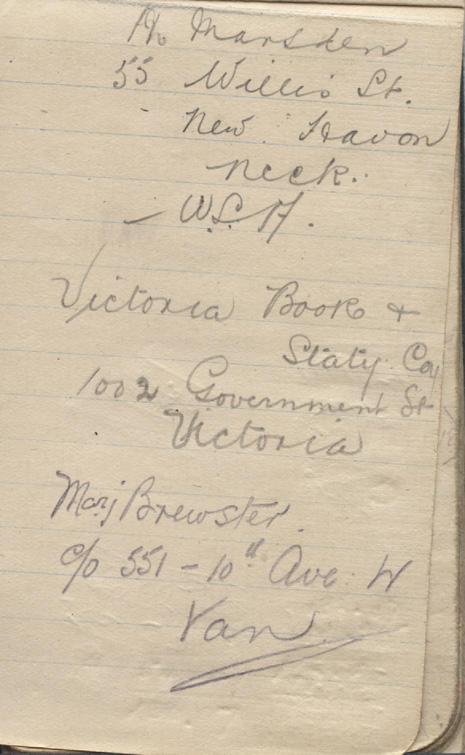 Marsden
55 Willis St.
New Havon
neck.
Victoria Book &
Staty. Coy
1002 Government St
Victoria
Marj Brewster.
c/o 551 - 10th Ave. W
Van.